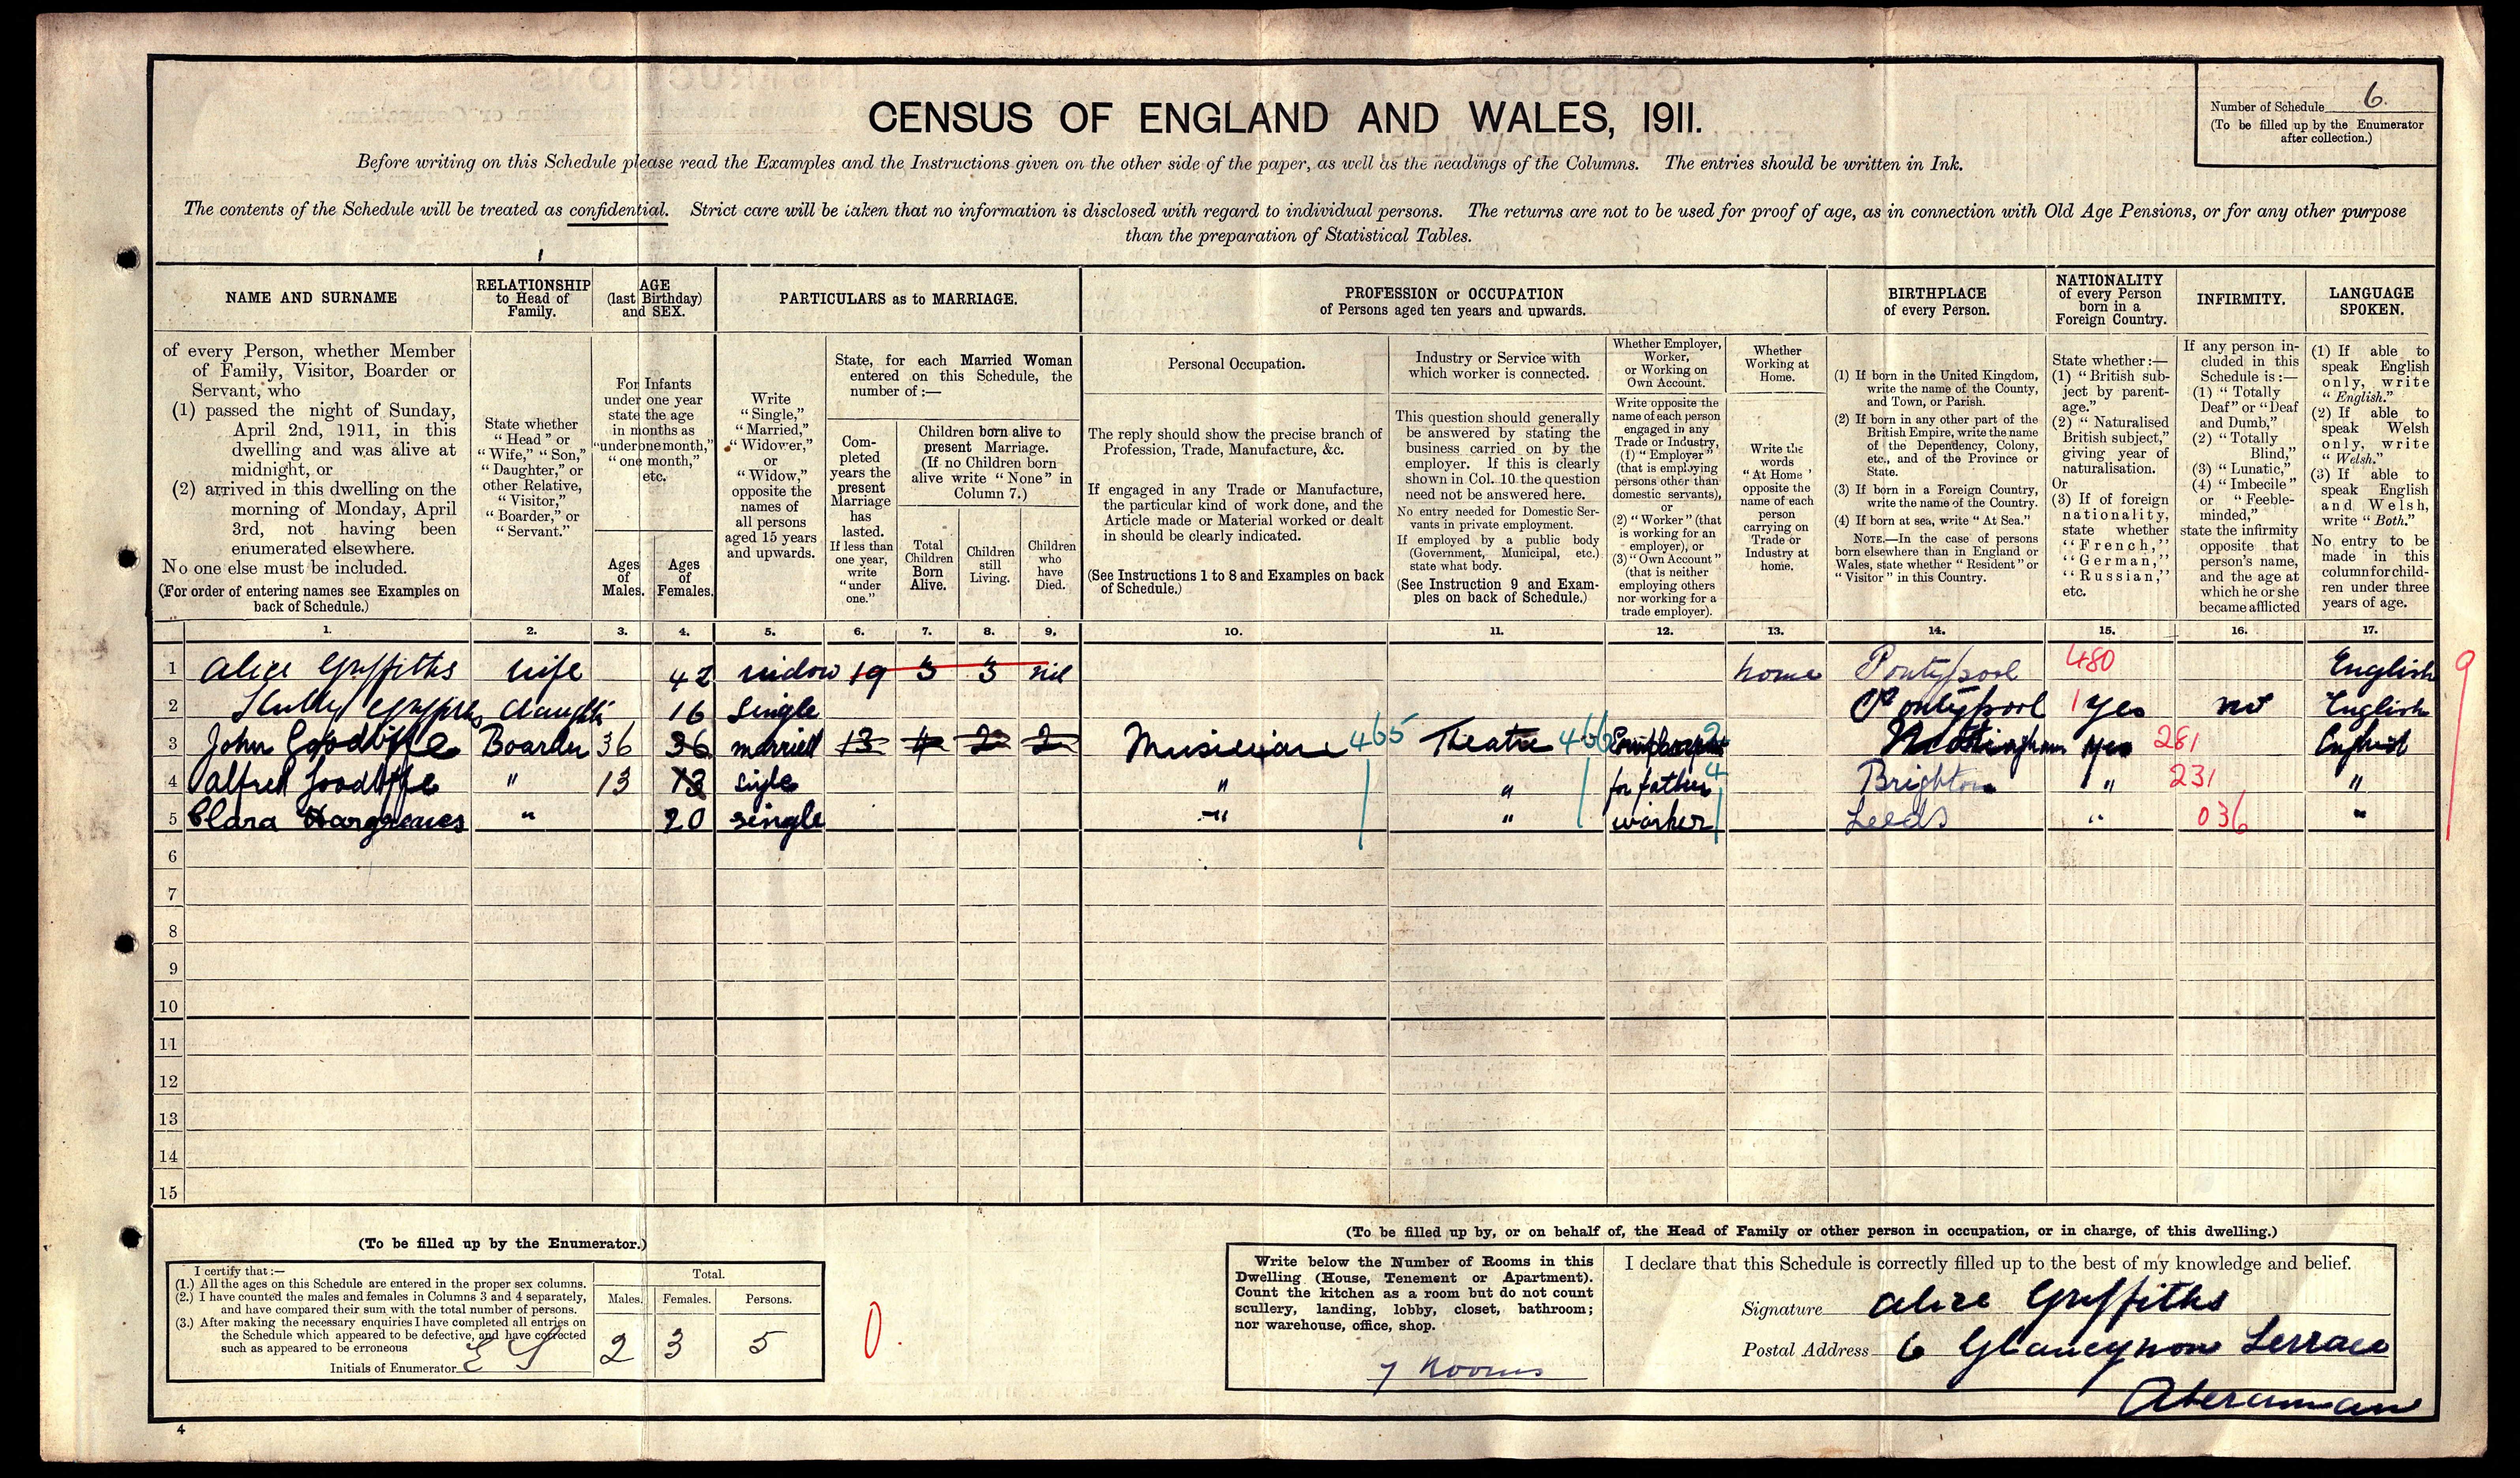 Number of Schedule 6.
(To be filled up by the Enumerator
after collection.)
CENSUS OF ENGLAND AND WALES, 1911.
Before writing on this Schedule please read the Examples and the Instructions given on the other side of the paper, as well as the headings of the Columns. The entries should be written in Ink.
The contents of the Schedule will be treated as confidential. Strict care will be taken that no information is disclosed with regard to individual persons. The returns are not to be used for proof of age, as in connection with Old Age Pensions, or for any other purpose
than the preparation of Statistical Tables.
NAME AND SURNAME
of every Person, whether Member
of Family, Visitor, Boarder or
Servant, who
(1) passed the night of Sunday,
April 2nd, 1911, in this
dwelling and was alive at
midnight, or
(2) arrived in this dwelling on the
morning of Monday, April
3rd, not having been
enumerated elsewhere.
No one else must be included.
(For order of entering names see Examples on
back of Schedule.)
RELATIONSHIP
to Head of
Family.
State whether
"Head" or
"Wife," "Son,"
"Daughter," or
other Relative,
"Visitor,"
"Boarder," or
"Servant."
AGE
(last Birthday)
and SEX.
For Infants
under one year
state the age
in months as
"under one month,"
"one month,"
etc.
Ages
of
Males.
Ages
of
Females.
PARTICULARS as to MARRIAGE.
Write
"Single,"
"Married,"
"Widower,"
or
"Widow,"
opposite the
names of
all persons
aged 15 years
and upwards.
State, for each Married Woman
entered on this Schedule, the
number of:—
Com-
pleted
years the
present
Marriage
has
lasted.
If less than
one year,
write
"under
one."
Children born alive to
present Marriage.
(If no Children born
alive write "None" in
Column 7.)
Total
Children
Born
Alive.
Children
still
Living.
Children
who
have
Died.
PROFESSION or OCCUPATION
of Persons aged ten years and upwards.
Personal Occupation.
The reply should show the precise branch of
Profession, Trade, Manufacture, &c.
If engaged in any Trade or Manufacture,
the particular kind of work done, and the
Article made or Material worked or dealt
in should be clearly indicated.
(See Instructions 1 to 8 and Examples on back
of Schedule.)
Industry or Service with
which worker is connected.
This question should generally
be answered by stating the
business carried on by the
employer. If this is clearly
shown in Col. 10 the question
need not be answered here.
No entry needed for Domestic Ser-
vants in private employment.
If employed by a public body
(Government, Municipal, etc.)
state what body.
(See Instruction 9 and Exam-
ples on back of Schedule.)
Whether Employer,
Worker,
or Working on
Own Account.
Write opposite the
name of each person
engaged in any
Trade or Industry,
(1) "Employer"
(that is employing
persons other than
domestic servants),
or
(2) "Worker" (that
is working for an
employer), or
(3) "Own Account"
(that is neither
employing others
nor working for a
trade employer).
Whether
Working at
Home.
Write the
words
"At Home"
opposite the
name of each
person
carrying on
Trade or
Industry at
home.
BIRTHPLACE
of every Person.
(1) If born in the United Kingdom,
write the name of the County,
and Town, or Parish.
(2) If born in any other part of the
British Empire, write the name
of the Dependency, Colony,
etc., and of the Province or
State.
(3) If born in a Foreign Country,
write the name of the Country.
(4) If born at sea, write "At Sea."
NOTE.—In the case of persons
born elsewhere than in England or
Wales, state whether "Resident" or
"Visitor" in this Country.
NATIONALITY
of every Person
born in a
Foreign Country.
State whether:—
(1) "British sub-
ject by parent-
age."
(2) "Naturalised
British subject,"
giving year of
naturalisation.
Or
(3) If of foreign
nationality,
state whether
"French,"
"German,"
"Russian,"
etc.
INFIRMITY.
If any person in-
cluded in this
Schedule is:—
(1) "Totally
Deaf" or "Deaf
and Dumb,"
(2) "Totally
Blind,"
(3) "Lunatic,"
(4) "Imbecile"
or "Feeble-
minded,"
state the infirmity
opposite that
person's name,
and the age at
which he or she
became afflicted
LANGUAGE
SPOKEN.
(1) If able to
speak English
only, write
"English."
(2) If able to
speak Welsh
only, write
"Welsh."
(3) If able to
speak English
and Welsh,
write "Both."
No entry to be
made in this
column for child-
ren under three
years of age.
1. 2. 3. 4. 5. 6. 7. 8. 9. 10. 11. 12. 13. 14. 15. 16. 17.
1 Alice Griffiths wife 42 widow 19 3 3 nil home Pontypool 480 English 9
2 Griffiths daughter 16 Single Pontypool 1 yes not English
3 John Goodliffe Boarder 36 36 married 13 4 2 2 Musician 465 Theatre 466 2 Nottingham yes 281 English
4 Alfred Goodliffe " 13 13 single " " for father 4 Brighton " 231 "
5 Clara Hargreaves " 20 single " " worker Leeds " 036 "
6
7
8
9
10
11
12
13
14
15
(To be filled up by the Enumerator.)
I certify that:—
(1.) All the ages on this Schedule are entered in the proper sex columns.
(2.) I have counted the males and females in Columns 3 and 4 separately,
and have compared their sum with the total number of persons.
(3.) After making the necessary enquiries I have completed all entries on
the Schedule which appeared to be defective, and have corrected
such as appeared to be erroneous
Initials of Enumerator E S
Total.
Males. Females. Persons.
2 3 5
0.
(To be filled up by, or on behalf of, the Head of Family or other person in occupation, or in charge, of this dwelling.)
Write below the Number of Rooms in this
Dwelling (House, Tenement or Apartment).
Count the kitchen as a room but do not count
scullery, landing, lobby, closet, bathroom;
nor warehouse, office, shop.
7 Rooms
I declare that this Schedule is correctly filled up to the best of my knowledge and belief.
Signature Alice Griffiths
Postal Address 6 Glancynon Terrace
Aberaman
4